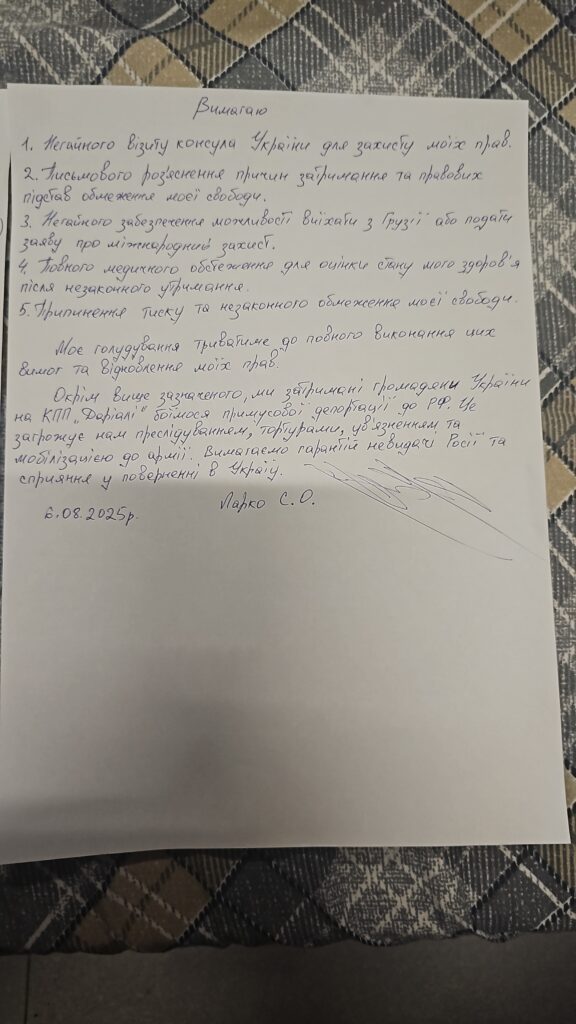 Вимагаю
1. Негайного візиту консула України для захисту моїх прав.
2. Письмового роз'яснення причин затримання та правових
підстав обмеження моєї свободи.
3. Негайного забезпечення можливості виїхати з Грузії або подати
заяву про міжнародний захист.
4. Повного медичного обстеження для оцінки стану мого здоров'я
після незаконного утримання.
5. Припинення тиску та незаконного обмеження моєї свободи.
Моє голодування триватиме до повного виконання цих
вимог та відновлення моїх прав.
Окрім вище зазначеного, ми затримані громадяни України
на КПП „Даріалі" боїмося примусової депортації до РФ. Це
загрожує нам преслідуванням, тортурами, ув'язненням та
мобілізацією до армії. Вимагаємо гарантій невидачі Росії та
сприяння у поверненні в Україу.
6.08.2025р. Ларко С.О.